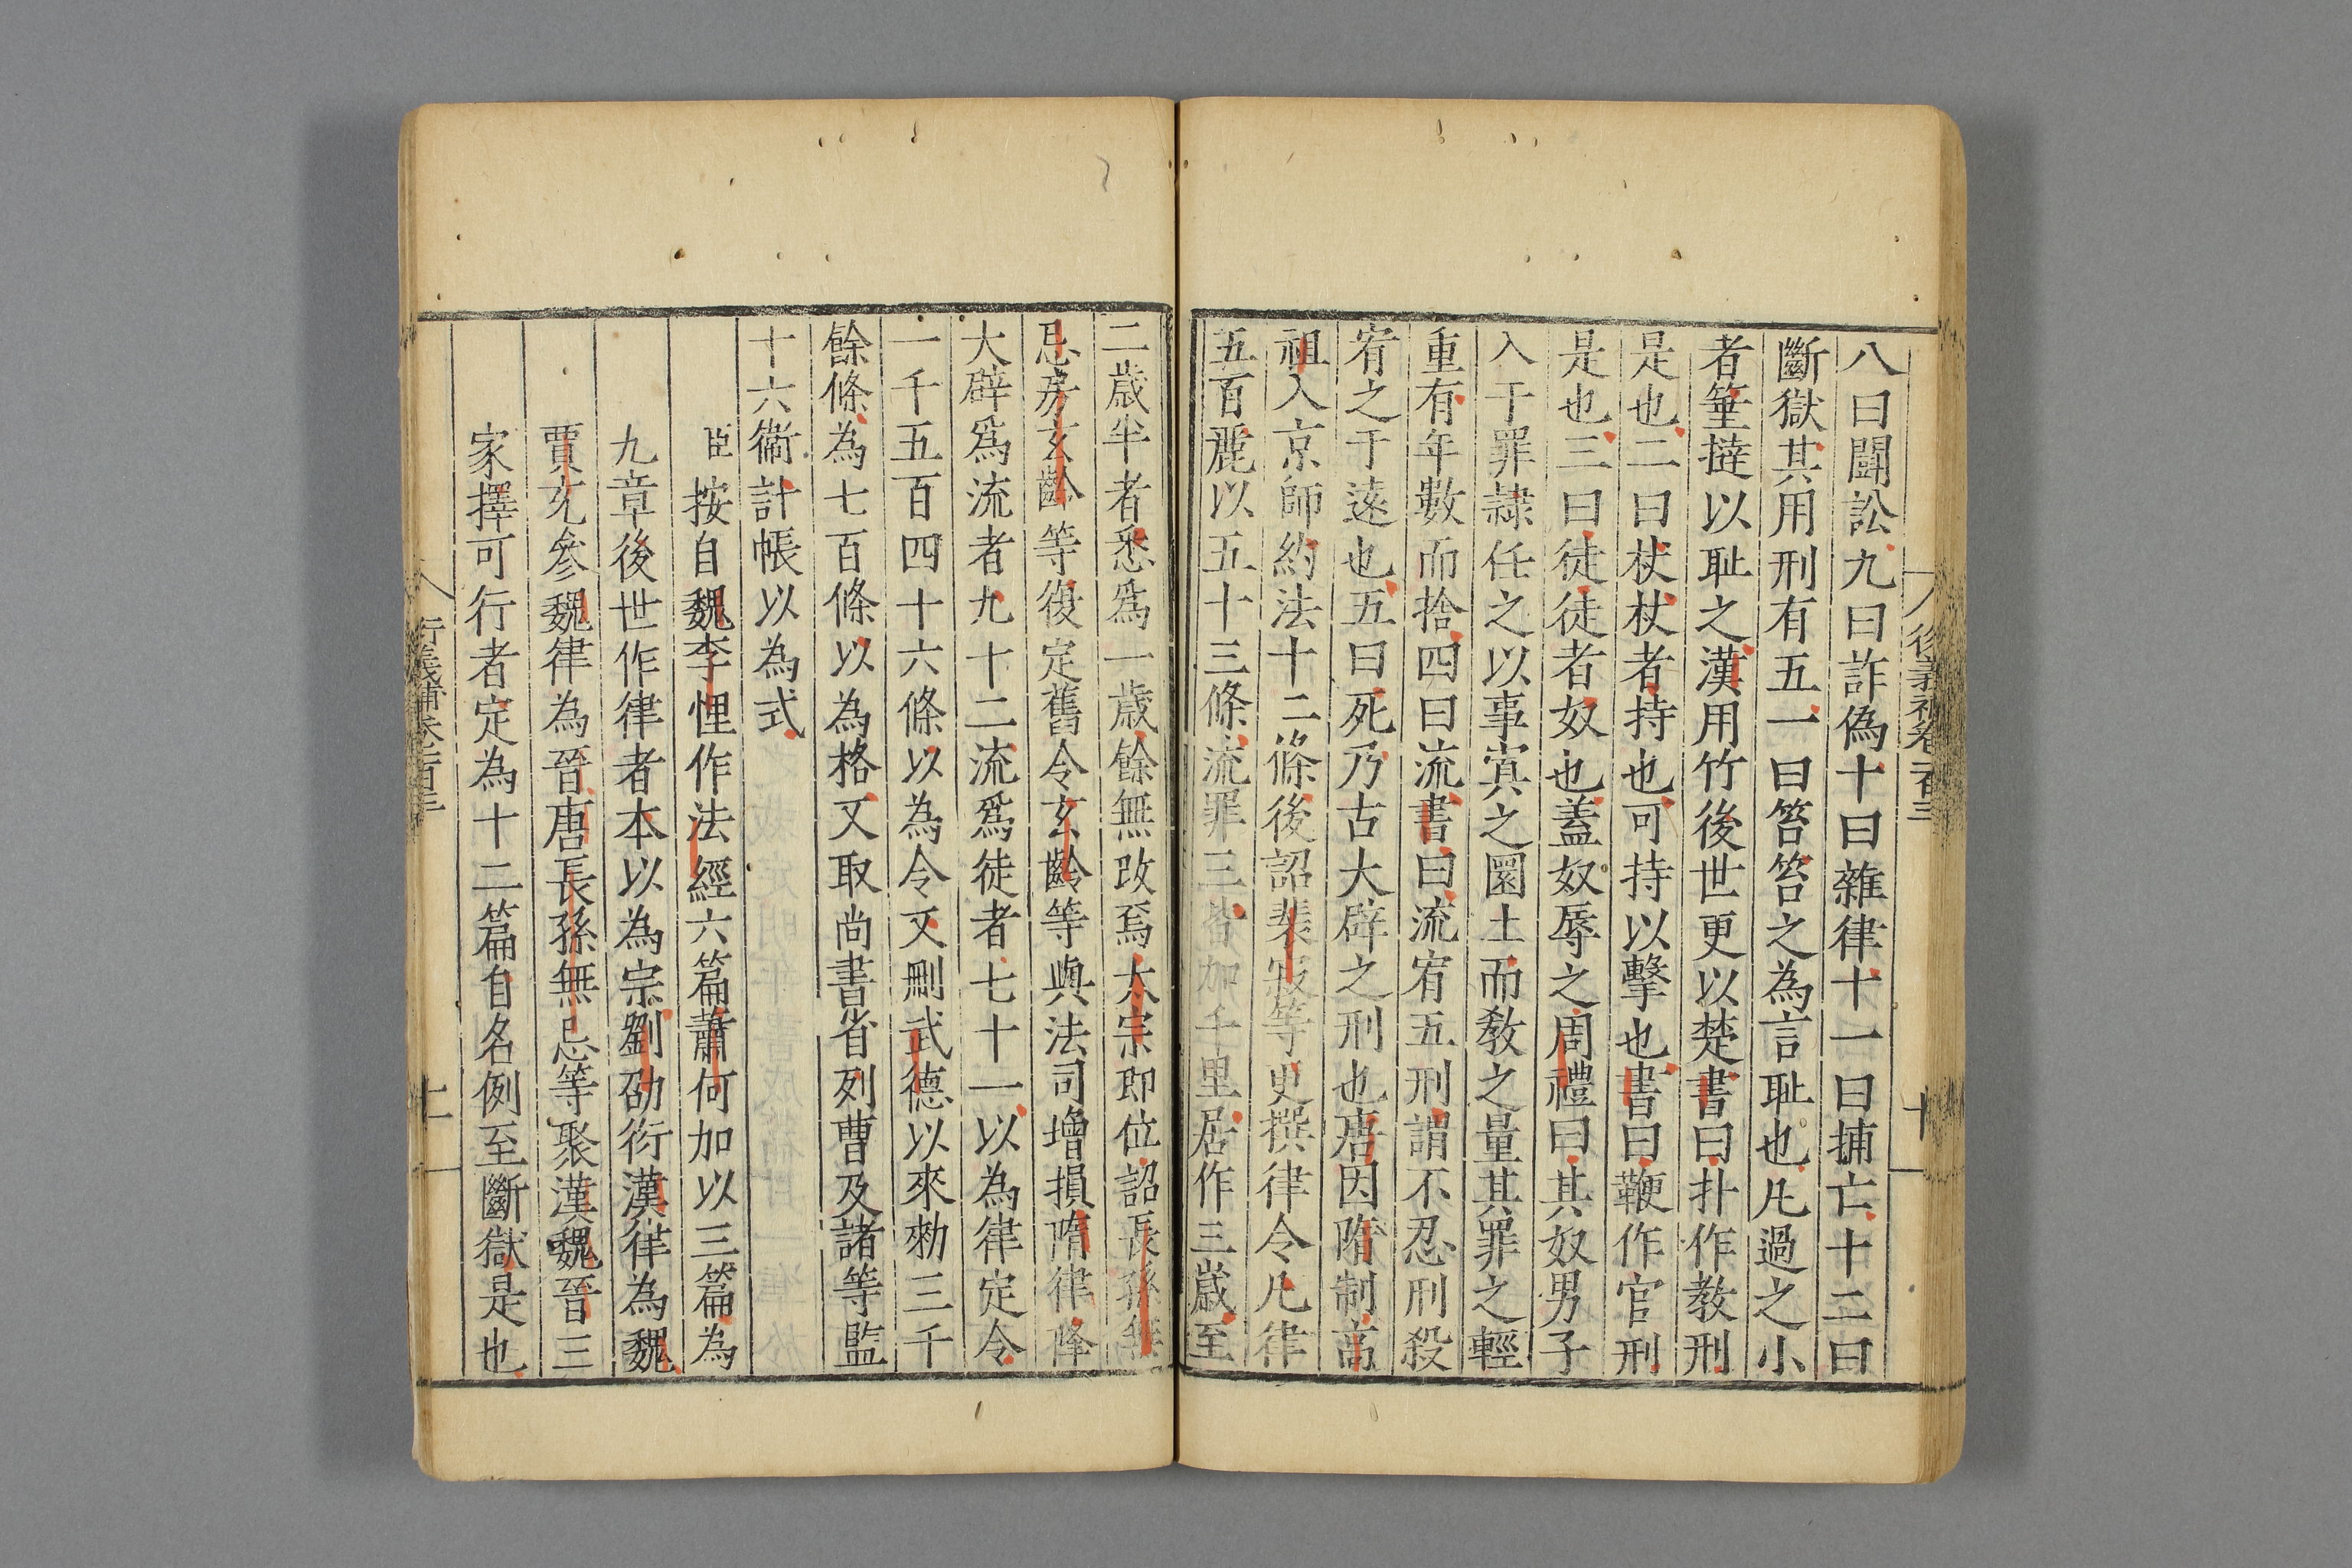 八曰鬬訟九曰詐偽十曰雜律十一曰捕亡十二曰
斷獄其用刑有五一曰笞笞之為言耻也凡過之小
者箠撻以耻之漢用竹後世更以楚書曰扑作教刑
是也二曰杖杖者持也可持以擊也書曰鞭作官刑
是也三曰徒徒者奴也蓋奴辱之周禮曰其奴男子
入于罪隷任之以事寘之圜土而敎之量其罪之輕
重有年數而捨四曰流書曰流宥五刑謂不忍刑殺
宥之于遠也五曰死乃古大辟之刑也唐因隋制高
祖入京師約法十二條後詔裴寂等更撰律令凡律
五百麗以五十三條流罪三皆加千里居作三歲至
二歲半者悉爲一歲餘無改焉太宗即位詔長孫無
忌房玄齡等復定舊令玄齡等與法司增損隋律降
大辟爲流者九十二流爲徒者七十一以為律定令
一千五百四十六條以為令又刪武德以來勑三千
餘條為七百條以為格又取尚書省列曹及諸等監
十六衞計帳以為式
臣按自魏李悝作法經六篇蕭何加以三篇為
九章後世作律者本以為宗劉劭衍漢律為魏
賈充參魏律為晉唐長孫無忌等聚漢魏晉三
家擇可行者定為十二篇自名例至斷獄是也